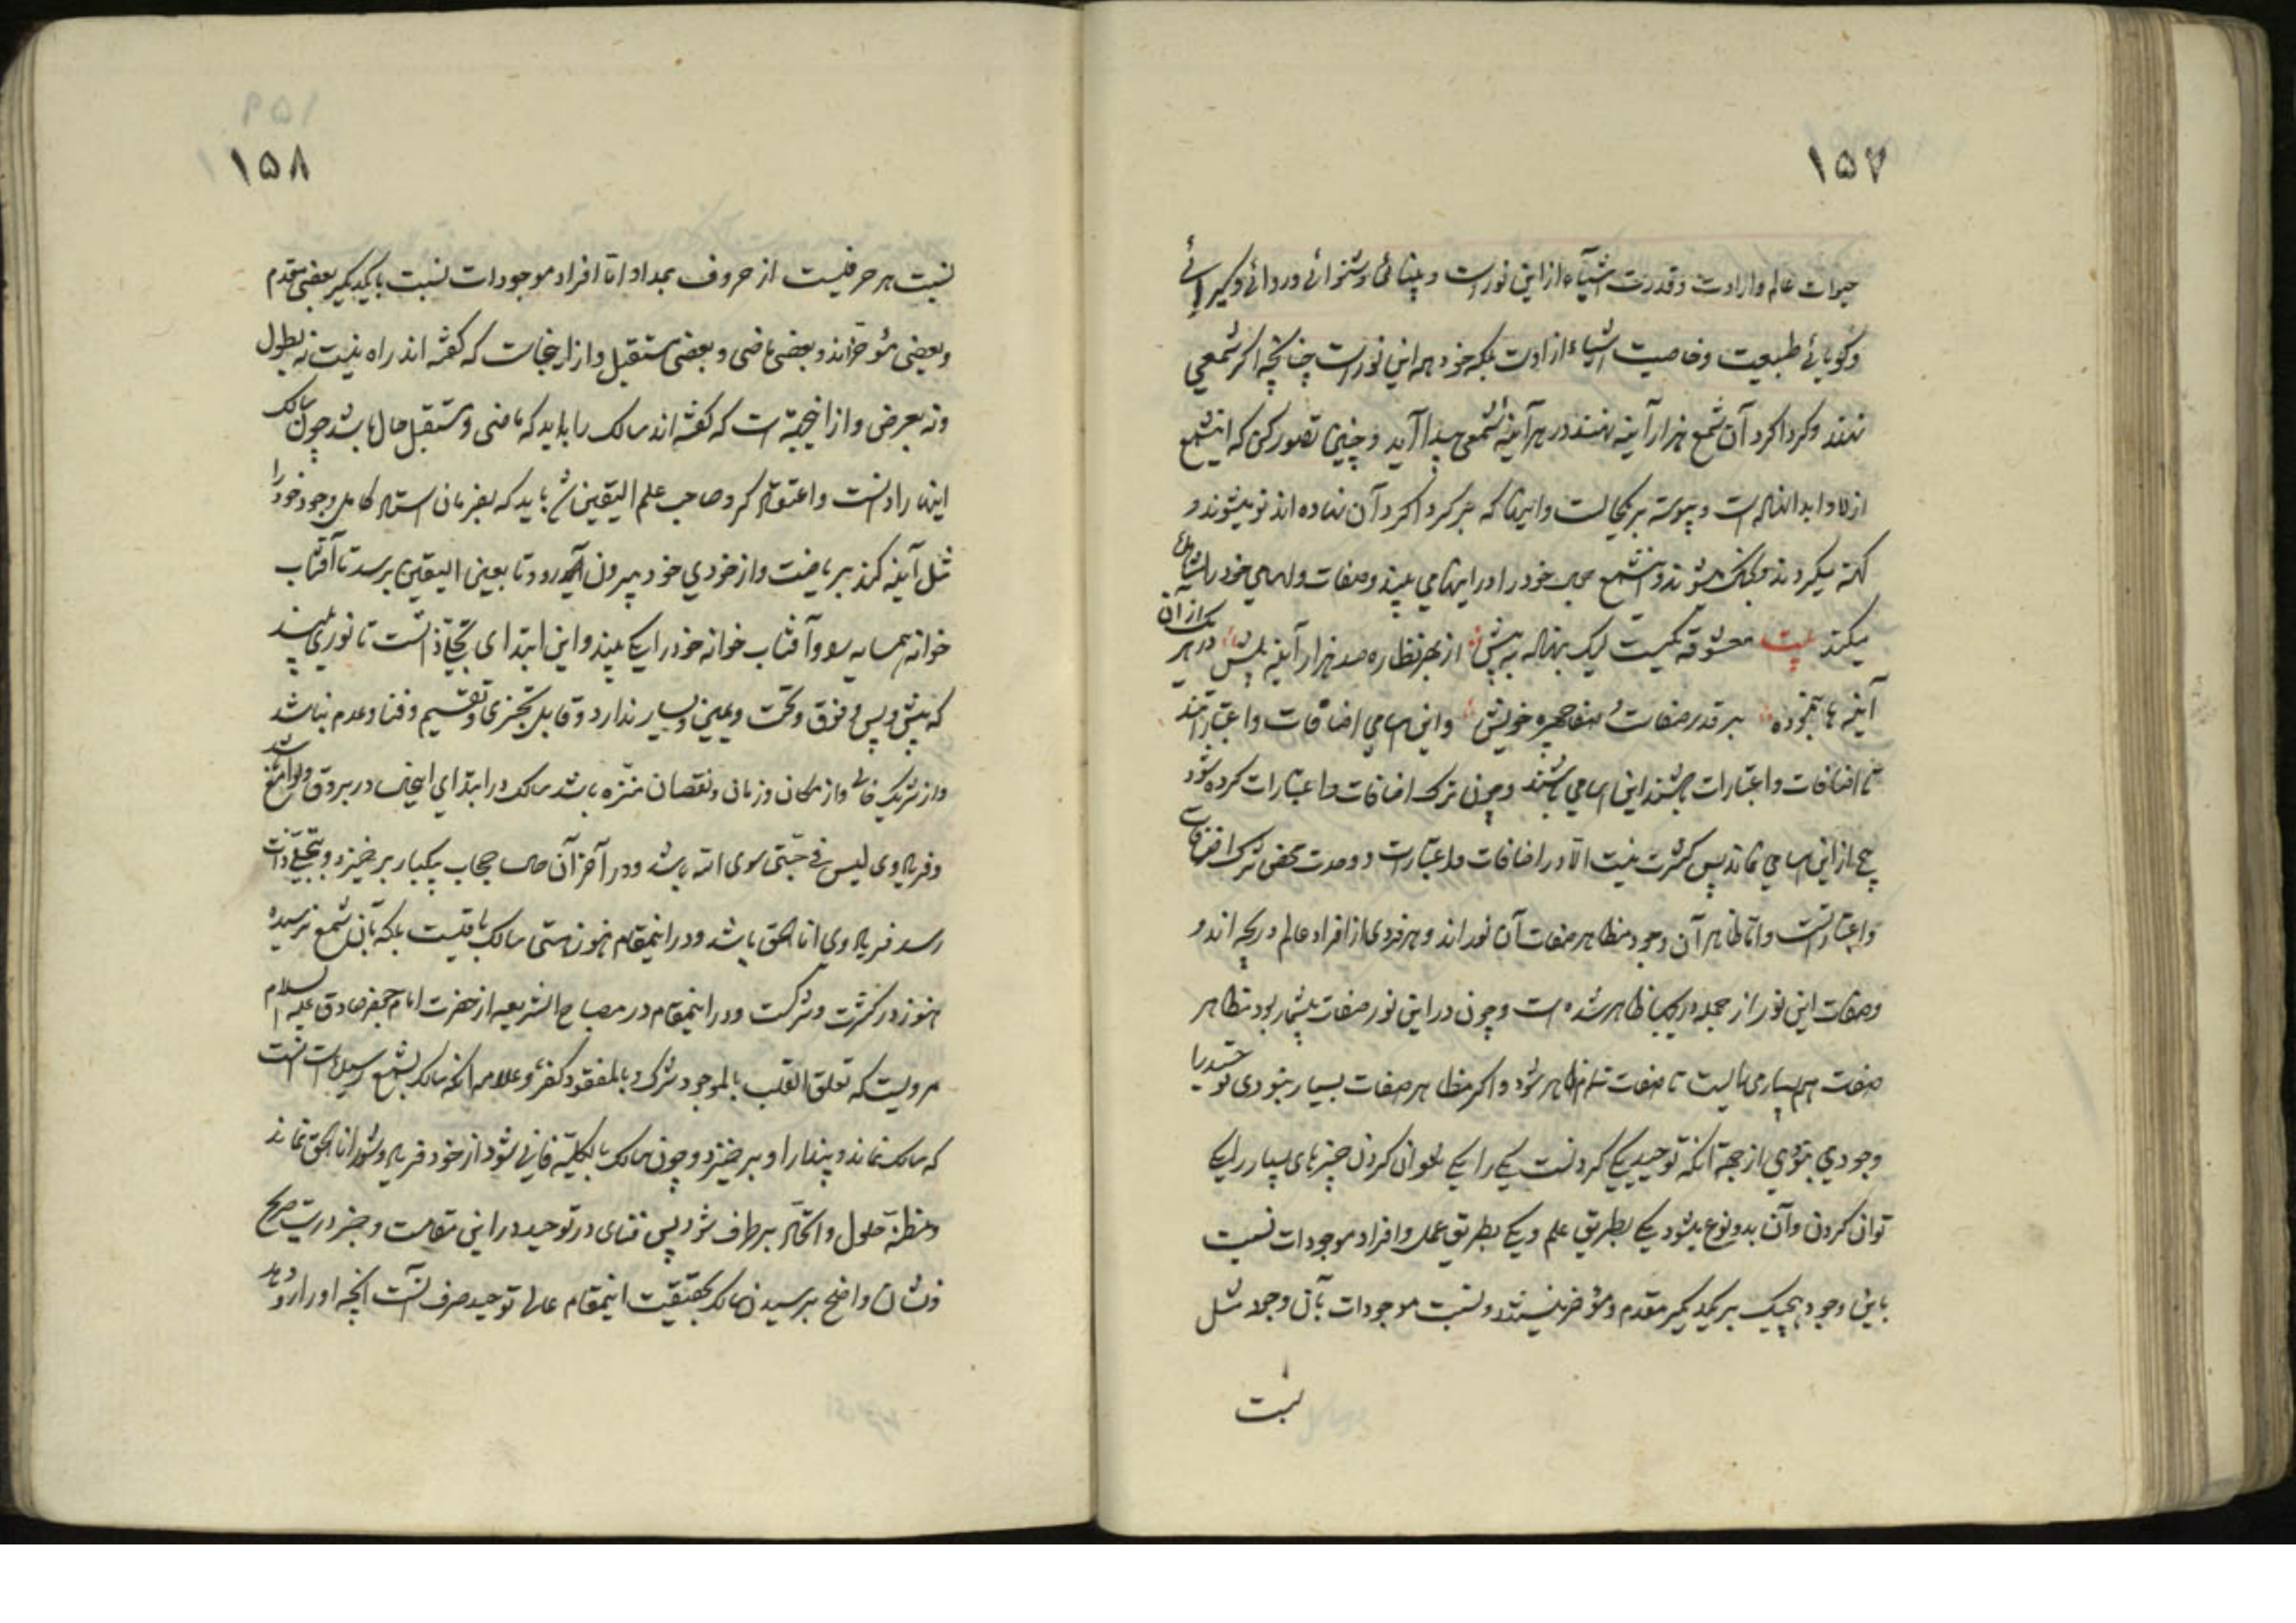 ۱۵۷
حیوات عالم و ارادت و قدرت اشیآء از این نور است و بینائی و شنوائی و روائی و گیرائی
و گویائی طبیعت و خاصیت اشیاء از اوست بلکه خود همه این نور است چنانچه اگر شمعی
نهند و گرداگرد آن شمع هزار آینه نهند در هر آینهٔ شمعی پیدا آید و چنین تصور کن که اینشمع
ازلا و ابدا است و پیوسته بر یکحالست و اینها که بر گرداگرد آن نهاده اند نو میشوند و
کهنه میگردند و میشوند و اینشمع خود را در اینها می بیند و صفات و اسامی خود را مشاهده
میکند بیت معشوقه یکیست لیک بنهاده به پیش از بهر نظاره صد هزار آینه بیش در هر یک از آن
آینه ها بنموده بر قدر صقالت و صفا چهره خویش و این اسامی اضافات و اعتبارا تند
تا اضافات و اعتبارات باشند این اسامی باشند و چون ترک اضافات و اعتبارات کرده شود
هیچ از این اسامی نماند پس کثرت نیست الا در اضافات و اعتبارات و وحدت محض ترک اضافات
و اعتبار است و اما ظاهر آن وجود مظاهر صفات آن نور اند و هر فردی از افراد عالم دریچه اند و
وصفات این نور از جمله دریچها ظاهر شده است و چون در این نور صفات بیشمار بود مظاهر
صفت هم بسیار می بایست تا صفات تمام ظاهر شود و اگر مظاهر صفات بسیار نبودی توحید را
وجودی نبودی از جهة آنکه توحید یکی کردنست یکی را یکی نتوان کردن چیزهای بسیار را یکی
توان کردن و آن بدو نوع میشود یکی بطریق علم و یکی بطریق عمل و افراد موجودات نسبت
باین وجود هیچیک بر یکدیگر مقدم و مؤخر نیستند و نسبت موجودات بآن وجود مثل
نسبت
۱۵۹
۱۵۸
نسبت هر حرفیست از حروف بمداد اما افراد موجودات نسبت با یکدیگر بعضی مقدم
و بعضی مؤخراند و بعضی ماضی و بعضی مستقبل و از اینجاست که گفته اند راه نیست نه بطول
و نه بعرض و از اینجهة است که گفته اند سالک را باید که ماضی و مستقبل حال باشد چون سالک
اینها را دانست و اعتقاد کرد و صاحب علم الیقین شد باید که بفرمان استاد کامل وجود خود را
مثل آینه کند بریاضت و از خودی خود بیرون رود تا بعین الیقین برسد تا آفتاب
خوانه همسایه و آفتاب خوانه خود را یکی بیند و این ابتدای تجلی ذاتست تا نوری بیند
که پیش و پس و فوق و تحت و یمین و یسار ندارد و قابل تجزی و تقسیم و فنا و عدم نباشد
و از شریک خالی و از مکان و زمان و نقصان منزه باشد سالک در ابتدای اینحال در بروق و لوامع باشد
و فریاد وی لیس فی جبتی سوی الله باشد و در آخر آن حال حجاب بیکبار برخیزد و بتجلی ذات
رسد فریاد وی انا الحق باشد و در اینمقام هنوز هستی سالک باقیست بلکه بآن شمع نرسیده
هنوز در کثرت و شرکت و در اینمقام در مصباح الشریعه از حضرت امام جعفر صادق علیه السلام
مرویست که تعلق القلب بالموجود شرک و بالمفقود کفر و علامه آنکه سالک بشمع رسیده است آنست
که سالک نماند و پندار او برخیزد و چون سالک بالکلیة فانی شود از خود فریاد و شور انا الحق نماند
و مظنهٔ حلول و اتحاد برطرف شود پس فنای در توحید در این مقامست و خبر درست صریح
و نشان واضح برسیدن سالک بحقیقت اینمقام عالی توحید صرف آنست که آنچه او را رو دهد